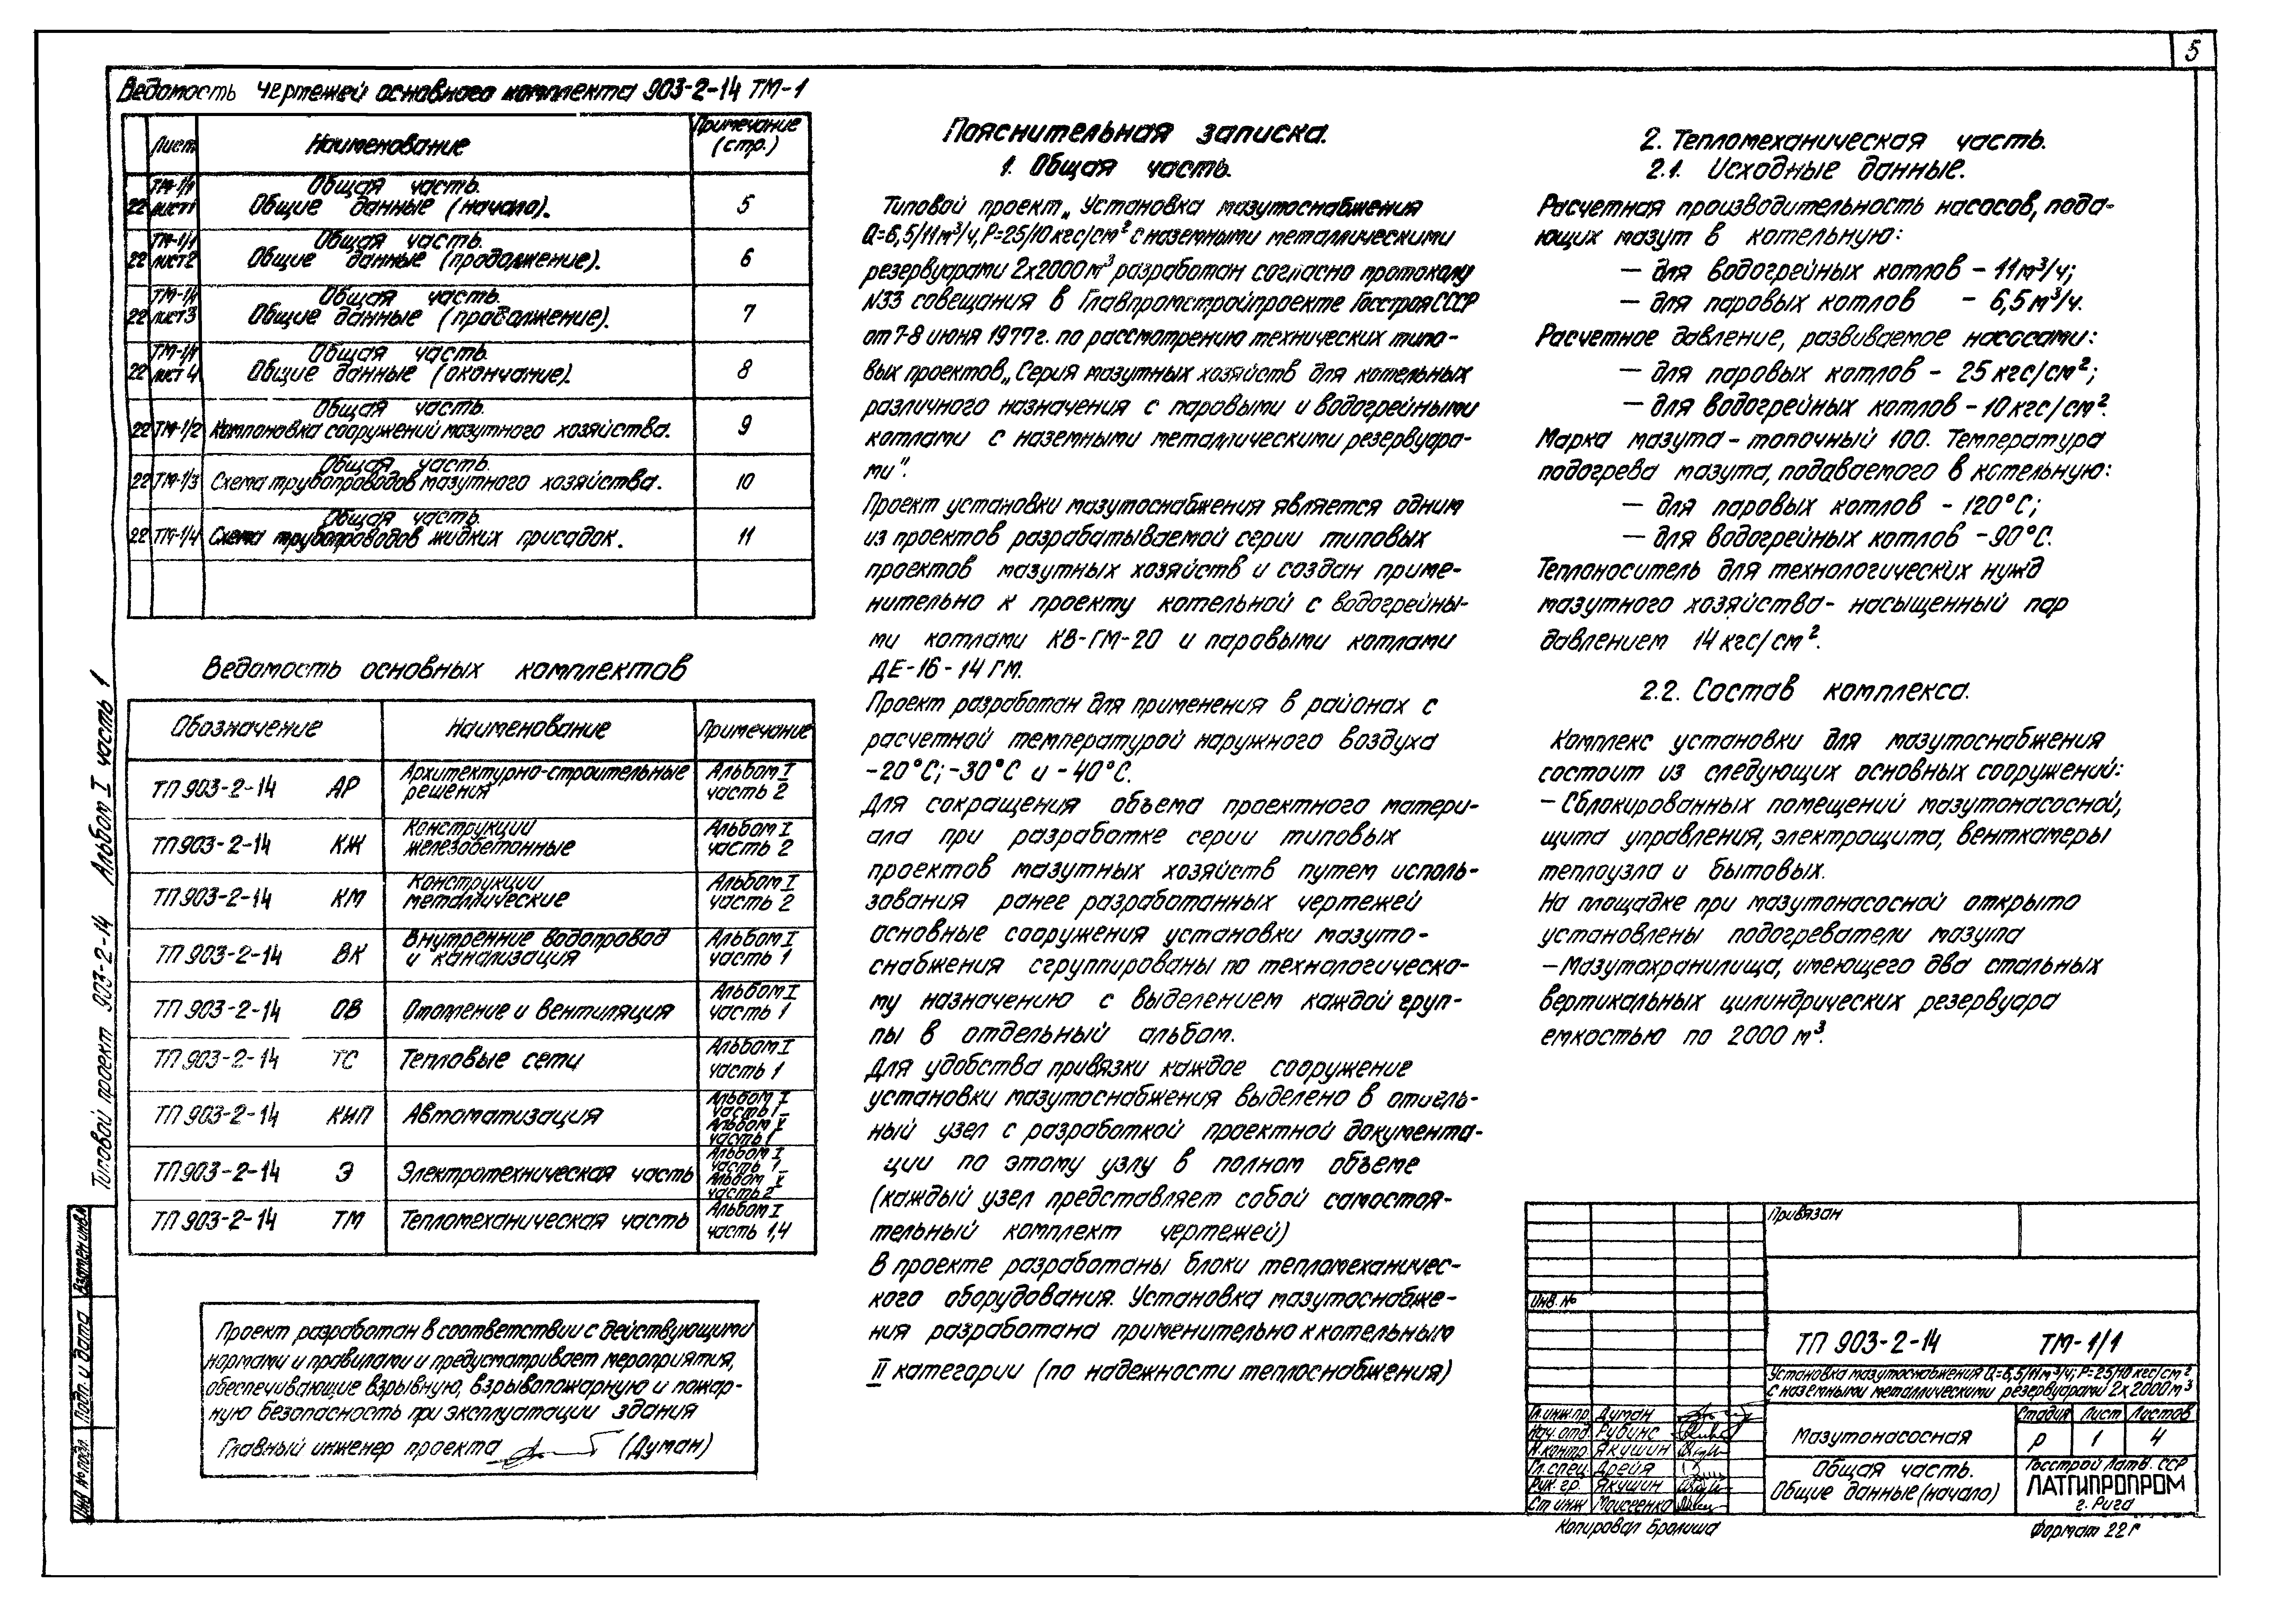 5
Ведомость чертежей основного комплекта 903-2-14 ТМ-1
Лист Наименование Примечание (стр.)
22 ТМ-1/1 лист1 Общая часть. Общие данные (начало). 5
22 ТМ-1/1 лист2 Общая часть. Общие данные (продолжение). 6
22 ТМ-1/1 лист3 Общая часть. Общие данные (продолжение). 7
22 ТМ-1/1 лист4 Общая часть. Общие данные (окончание). 8
22 ТМ-1/2 Общая часть. Компоновка сооружений мазутного хозяйства. 9
22 ТМ-1/3 Общая часть. Схема трубопроводов мазутного хозяйства. 10
22 ТМ-1/4 Общая часть. Схема трубопроводов жидких присадок. 11
Ведомость основных комплектов
Обозначение Наименование Примечание
ТП 903-2-14 АР Архитектурно-строительные решения Альбом I часть 2
ТП 903-2-14 КЖ Конструкции железобетонные Альбом I часть 2
ТП 903-2-14 КМ Конструкции металлические Альбом I часть 2
ТП 903-2-14 ВК Внутренние водопровод и канализация Альбом I часть 1
ТП 903-2-14 ОВ Отопление и вентиляция Альбом I часть 1
ТП 903-2-14 ТС Тепловые сети Альбом I часть 1
ТП 903-2-14 КИП Автоматизация Альбом I часть 1 Альбом V часть 1
ТП 903-2-14 Э Электротехническая часть Альбом I часть 1 Альбом V часть 2
ТП 903-2-14 ТМ Тепломеханическая часть Альбом I часть 1,4
Проект разработан в соответствии с действующими
нормами и правилами и предусматривает мероприятия,
обеспечивающие взрывную, взрывопожарную и пожар-
ную безопасность при эксплуатации здания
Главный инженер проекта (Думан)
Типовой проект 903-2-14 Альбом I часть 1
Взамен инв.№
Подп. и дата
Инв № подл.
Пояснительная записка.
1. Общая часть.
Типовой проект „Установка мазутоснабжения
Q=6,5/11м³/ч, Р=25/10 кгс/см² с наземными металлическими
резервуарами 2х2000м³ разработан согласно протоколу
N33 совещания в Главпромстройпроекте Госстроя СССР
от 7-8 июня 1977г. по рассмотрению технических типо-
вых проектов „Серия мазутных хозяйств для котельных
различного назначения с паровыми и водогрейными
котлами с наземными металлическими резервуара-
ми".
Проект установки мазутоснабжения является одним
из проектов разрабатываемой серии типовых
проектов мазутных хозяйств и создан приме-
нительно к проекту котельной с водогрейны-
ми котлами КВ-ГМ-20 и паровыми котлами
ДЕ-16-14 ГМ.
Проект разработан для применения в районах с
расчетной температурой наружного воздуха
-20°С; -30°С и -40°С.
Для сокращения объема проектного матери-
ала при разработке серии типовых
проектов мазутных хозяйств путем исполь-
зования ранее разработанных чертежей
основные сооружения установки мазуто-
снабжения сгруппированы по технологическо-
му назначению с выделением каждой груп-
пы в отдельный альбом.
Для удобства привязки каждое сооружение
установки мазутоснабжения выделено в отдель-
ный узел с разработкой проектной документа-
ции по этому узлу в полном объеме
(каждый узел представляет собой самостоя-
тельный комплект чертежей)
В проекте разработаны блоки тепломеханичес-
кого оборудования. Установка мазутоснабже-
ния разработана применительно к котельным
II категории (по надежности теплоснабжения)
2. Тепломеханическая часть.
2.1. Исходные данные.
Расчетная производительность насосов, пода-
ющих мазут в котельную:
— для водогрейных котлов - 11м³/ч;
— для паровых котлов - 6,5м³/ч.
Расчетное давление, развиваемое насосами:
— для паровых котлов - 25 кгс/см²;
— для водогрейных котлов - 10 кгс/см².
Марка мазута - топочный 100. Температура
подогрева мазута, подаваемого в котельную:
— для паровых котлов - 120°С;
— для водогрейных котлов - 90°С.
Теплоноситель для технологических нужд
мазутного хозяйства - насыщенный пар
давлением 14 кгс/см².
2.2. Состав комплекса.
Комплекс установки для мазутоснабжения
состоит из следующих основных сооружений:
— Сблокированных помещений мазутонасосной,
щита управления, электрощита, венткамеры
теплоузла и бытовых.
На площадке при мазутонасосной открыто
установлены подогреватели мазута
— Мазутохранилища, имеющего два стальных
вертикальных цилиндрических резервуара
емкостью по 2000 м³.
Привязан
Инв. №
ТП 903-2-14 ТМ-1/1
Установка мазутоснабжения Q=6,5/11м³/ч; Р=25/10 кгс/см²
с наземными металлическими резервуарами 2х2000м³
Гл.инж.пр Думан
Нач. отд Рубинс
Н.контр. Якушин
Гл.спец. Дрейя
Рук. гр. Якушин
Ст инж Моисеенко
Мазутонасосная
Стадия Лист Листов
Р 1 4
Общая часть.
Общие данные (начало)
Госстрой Латв. ССР
ЛАТГИПРОПРОМ
г. Рига
Копировал Бролиша
Формат 22Г